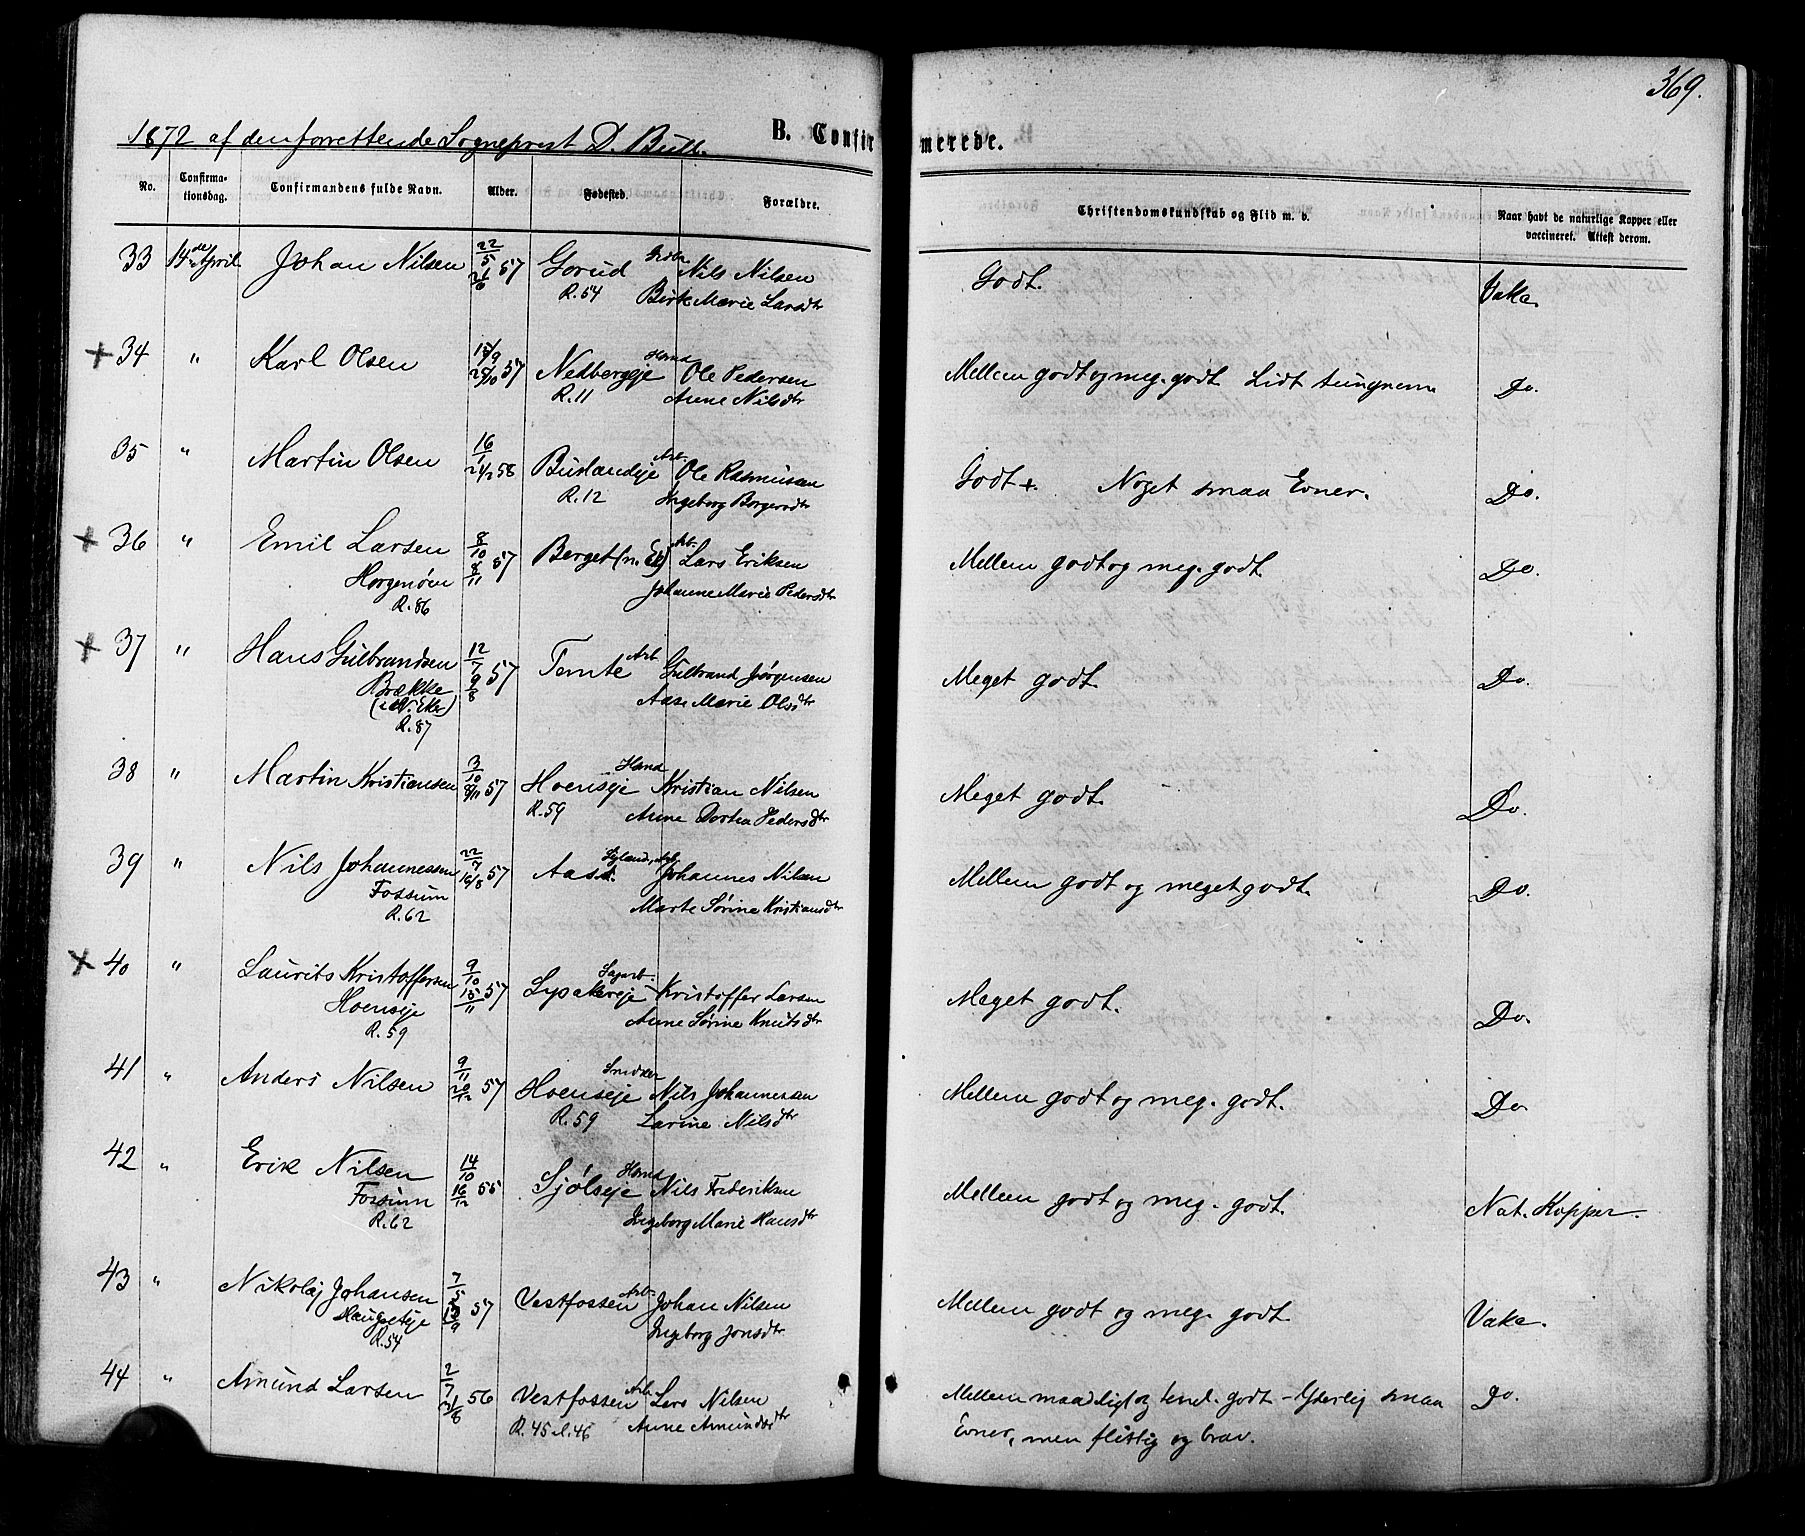 369.
1872 af den forrettende Sogneprest D. Bull.
B. Confirmerede.
No. Confirmationsdag. Confirmandens fulde Navn. Alder. Fødested. Forældre. Christendomskundskab og Flid m. v. Naar havt de naturlige Kopper eller vaccineret. Attest derom.
33 14de April Johan Nilsen 22/5 57 Gorud Nils Nilsen Godt. Vake.
21/6 R.54 Birte Marie Larsdtr
+ 34 " Karl Olsen 57 Nedbergeje Hmd Ole Pedersen Mellem godt og meg. godt Lidt tungnem Do.
25/10 R.11 Anne Nilsdtr
35 " Martin Olsen 16/1 58 Buslandeje Arb. Ole Rasmussen Godt +. Noget smaa Evner. Do.
R.12 Ingeborg Borgersdtr
+ 36 " Emil Larsen 8/10 57 Berget (n. Ek) Arb. Lars Eriksen Mellem godt og meg. godt. Do.
Horgenøen 8/11 Johanne Marie Pedersdtr
R.86
+ 37 " Hans Gulbrandsen 12/7 57 Temte Arb Gulbrand Jørgensen Meget godt. Do.
Brække 9/8 Aase Marie Olsdtr
(i N. Eker)
R.87
38 " Martin Kristiansen 3/10 57 Hoenseje Hmd Kristian Nilsen Meget godt. Do.
R.59 Anne Dortea Pedersdtr
39 " Nils Johannessen 22/7 57 Aass. Arb Johannes Nilsen Mellem godt og meget godt. Do.
Fossum 16/8 Marte Sørine Kristiansdtr
R.62
x 40 " Laurits Kristoffersen 9/10 57 Lypakereje Sagarb. Kristoffer Larsen Meget godt. Do.
Hoenseje 15/11 Anne Sørine Knutsdtr
R.59
41 " Anders Nilsen 9/11 57 Hoenseje Snekker Nils Johannessen Mellem godt og meg. godt. Do.
20/12 R.59 Larine Nilsdtr
42 " Erik Nilsen 14/10 55 Sjølseje Hmd Nils Frederiksen Mellem godt og meg. godt. Nat. Kopper.
Fossum 16/12 Ingeborg Marie Hansdtr
R.62
43 " Nikolaj Johansen 7/5 57 Vestfossen Arb. Johan Nilsen Mellem godt og meg. godt. Vake.
Haugseje Ingeborg Jonsdtr
R.54
44 " Amund Larsen 2/7 56 Vestfossen Arb. Lars Nilsen Mellem maadeligt og tml. godt – Yderlig smaa Do.
31/8 R.45 el. 46 Anne Amundsdtr Evner, men flittig og brav.